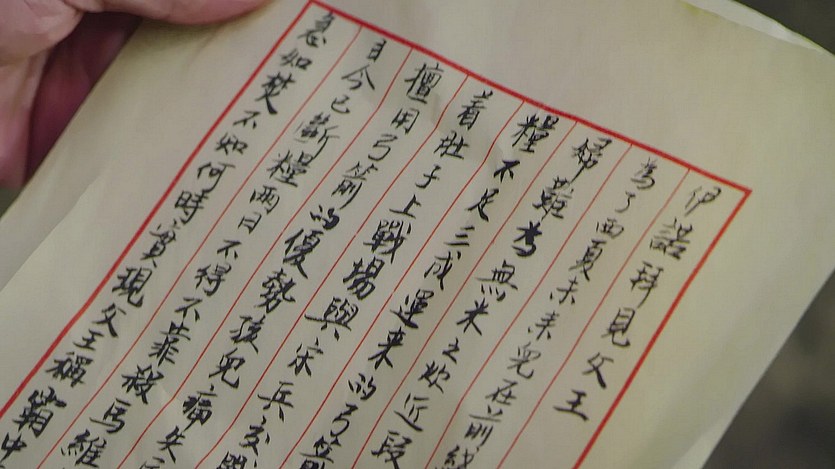 伊諾拜見父王
為了西夏未来兒在前線
婦難為無米之炊近段
糧不足三成運来的弓箭
着肚子上戰場與宋兵交戰
擅用弓箭的優勢孩兒痛失
今已斷糧兩日不得不靠殺馬維
急如焚不知何時實現父王稱霸中